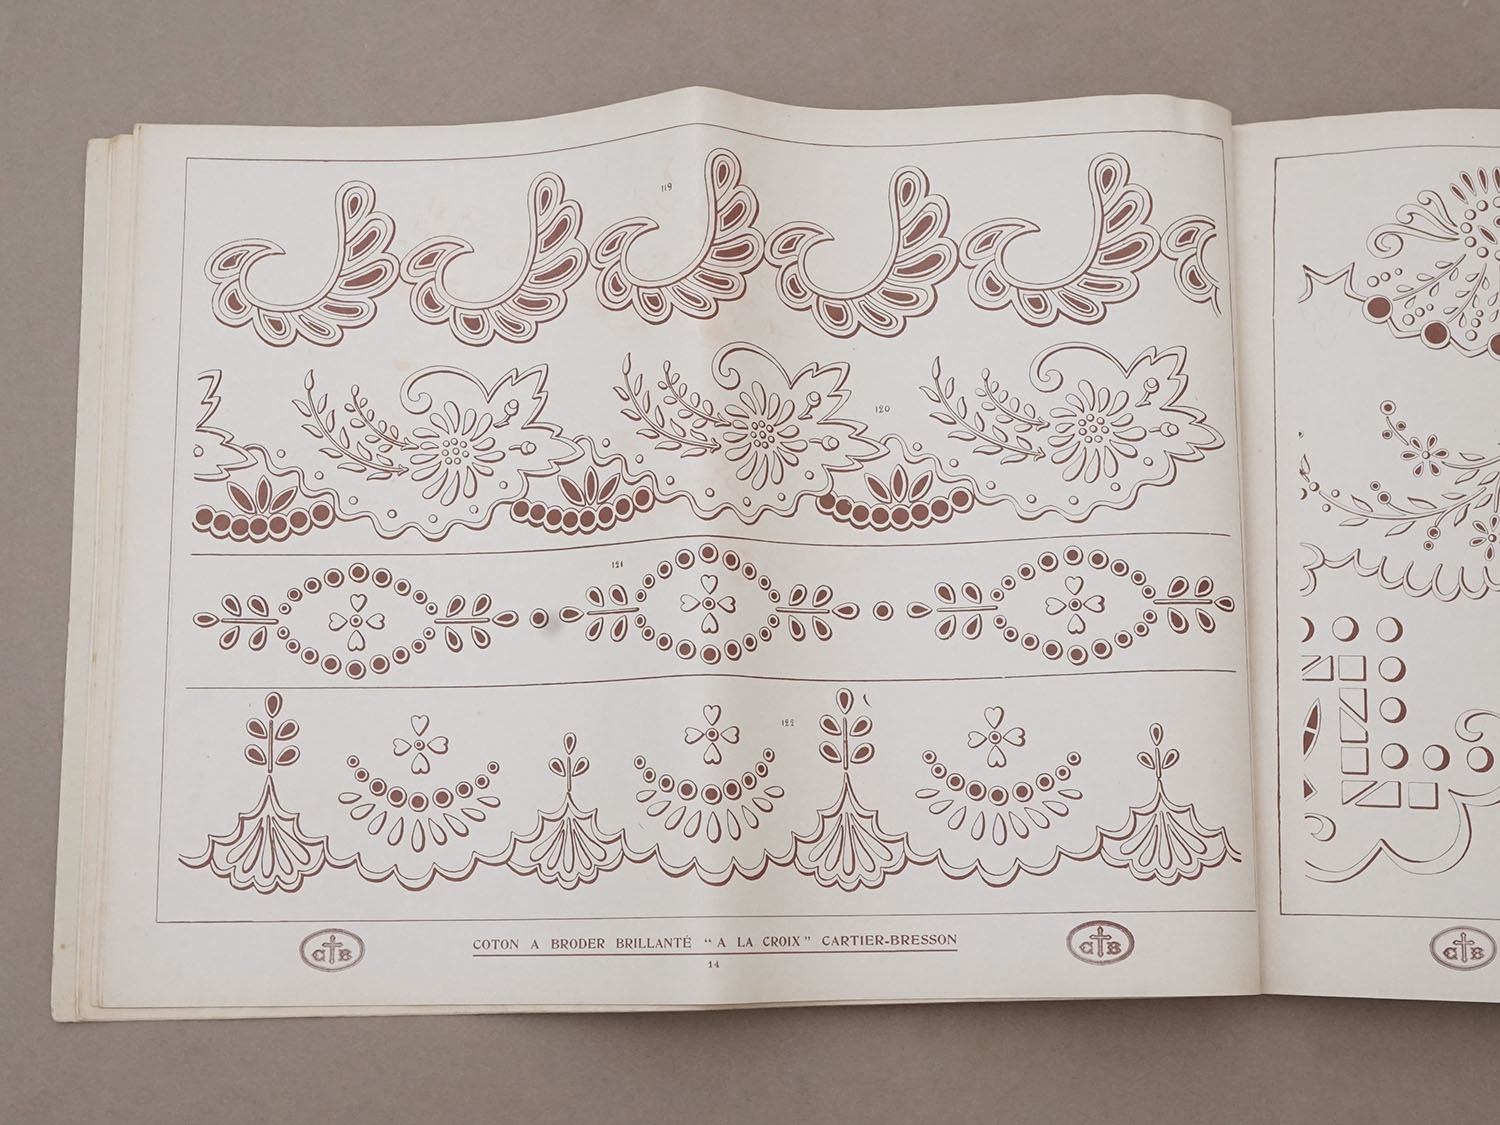 119
120
121
122
C B
COTON A BRODER BRILLANTÉ “A LA CROIX” CARTIER-BRESSON
C B
14
C B